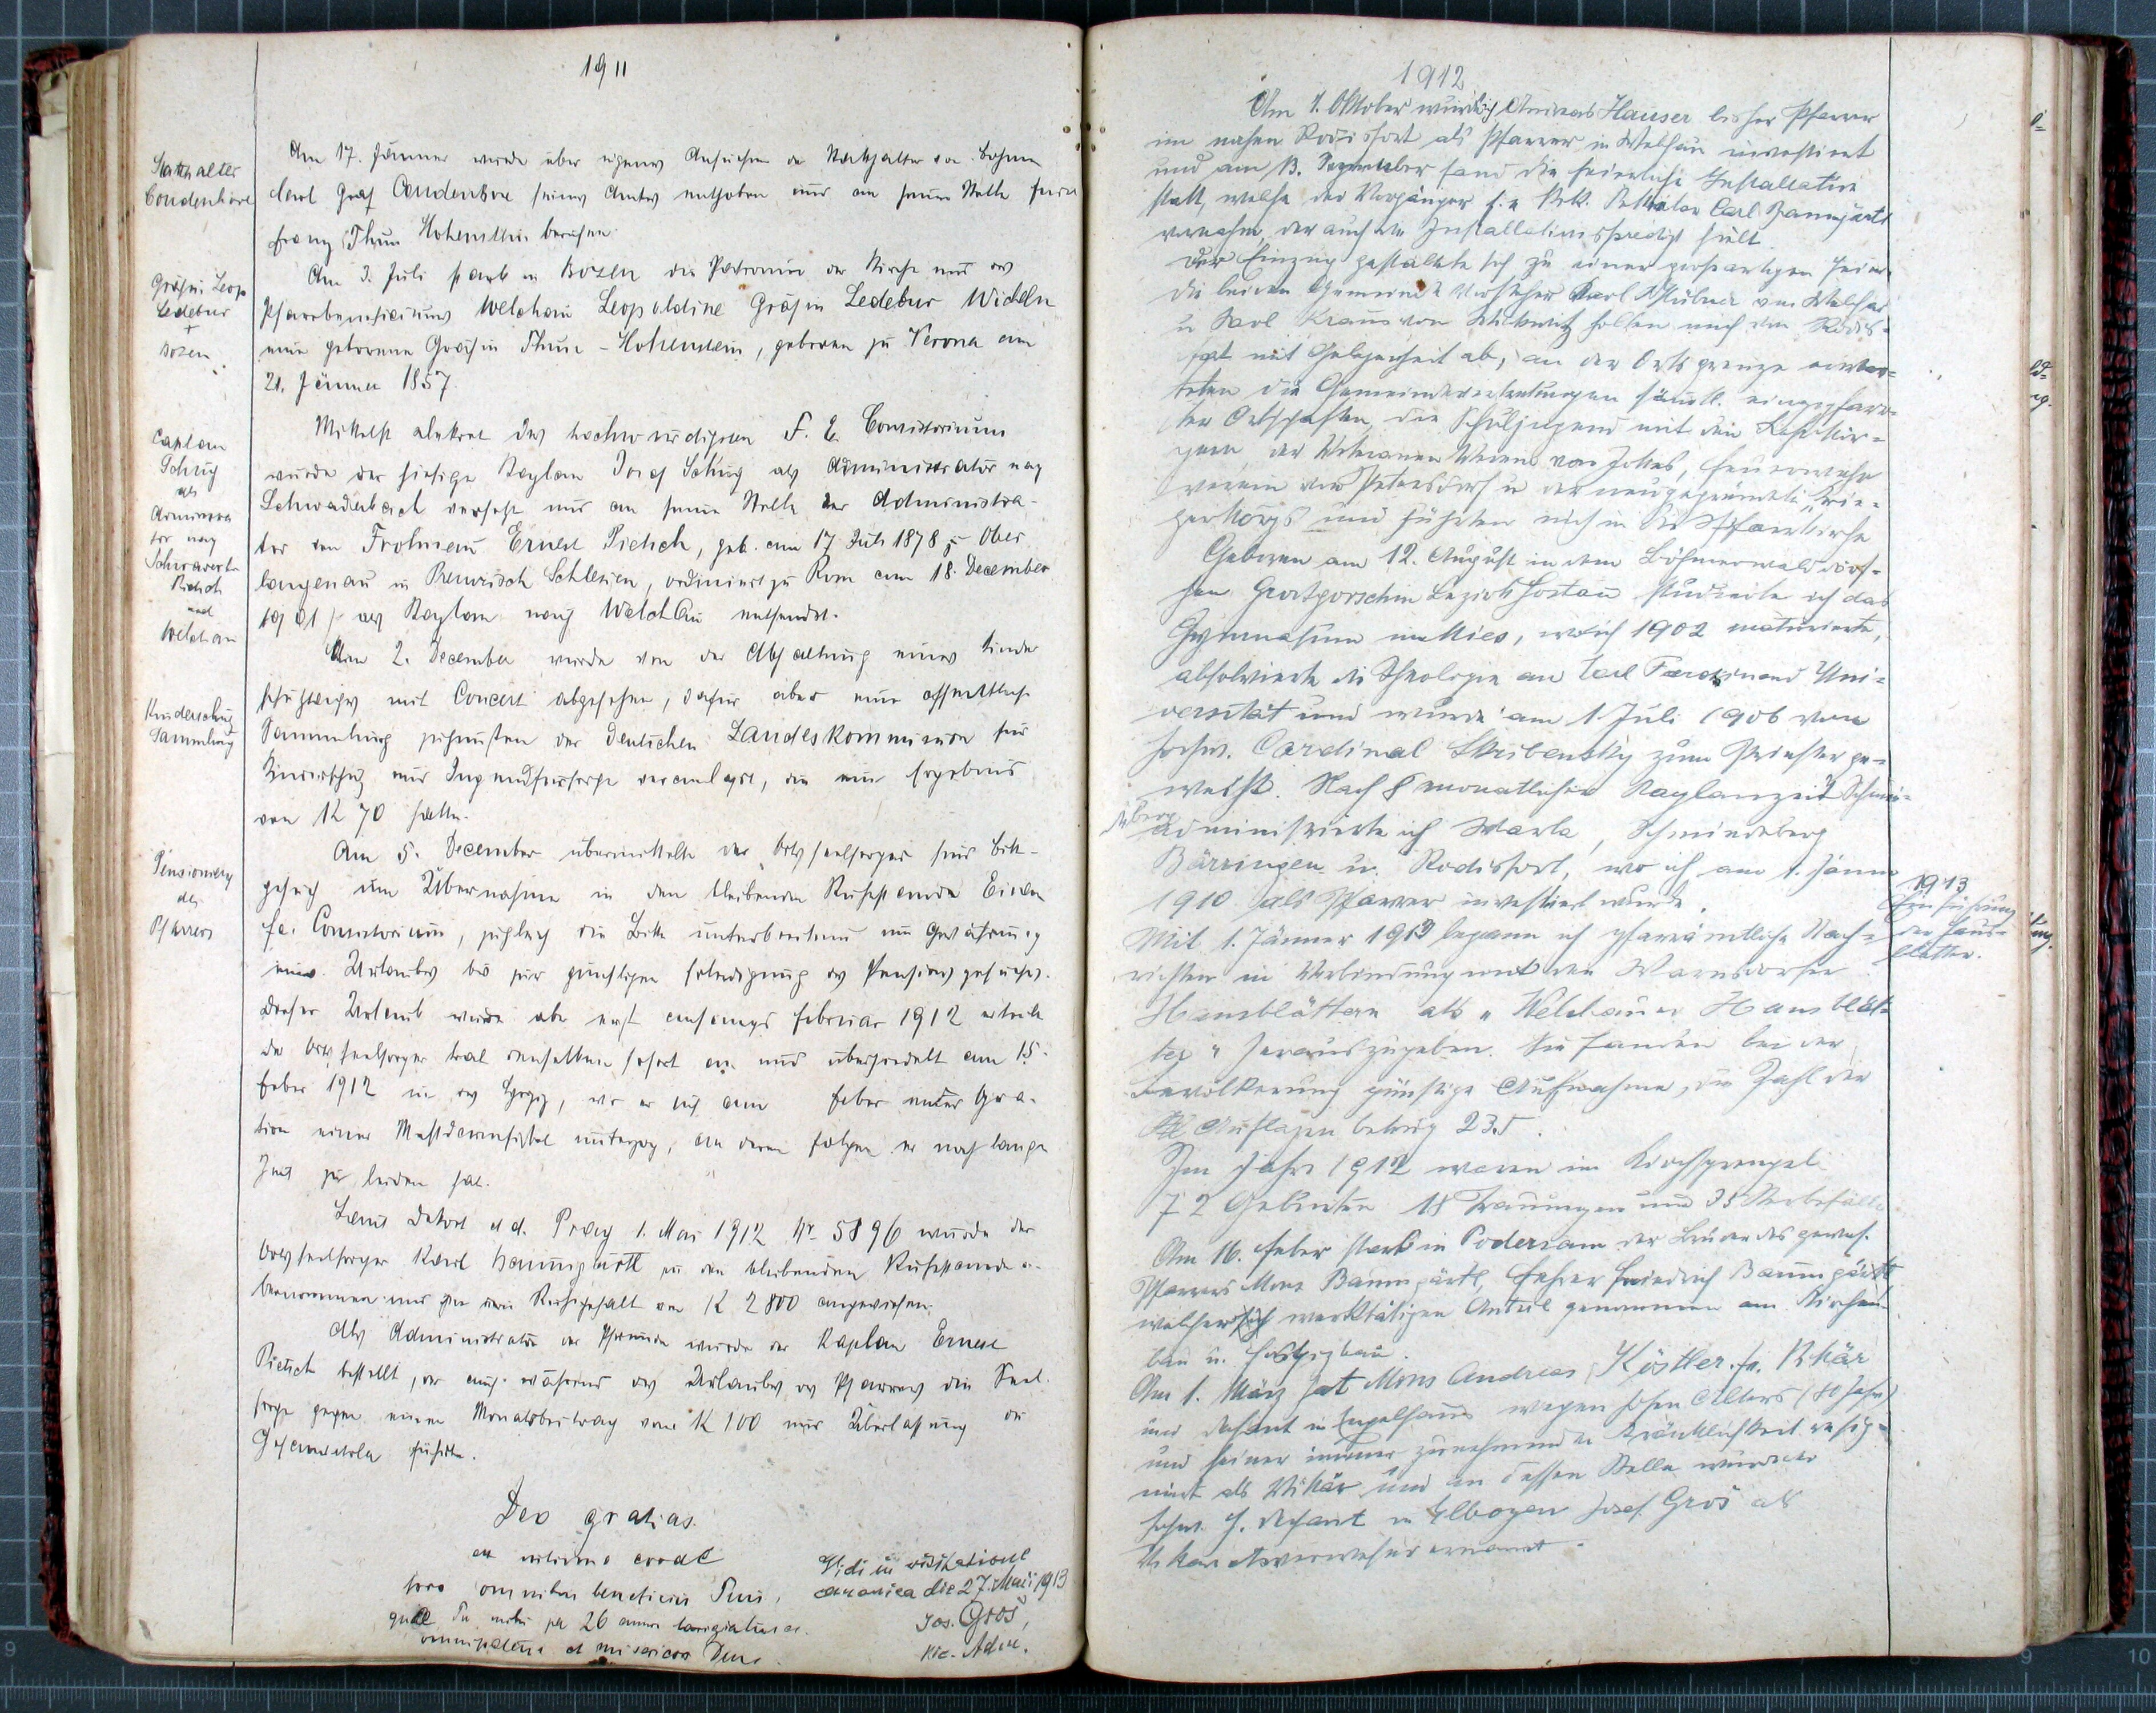 1911
Statthalter
Coudenhove
Am 17. Jänner wurde über eigenes Ansuchen der Statthalter von Böhmen
Carl Graf Coudenhove seines Amtes enthoben und an seine Stelle Fürst
Franz Thun Hohenstein berufen.
Gräfin Leop
Ledebur
+
Bozen
Am 3. Juli starb in Bozen die Patronin der Kirche und des
Pfarrbeneficiums Welchau Leopoldine Gräfin Ledebur Wicheln
eine geborene Gräfin Thun-Hohenstein, geboren zu Verona am
21. Jänner 1857.
Caplan
Schug
als
Administra
tor nach
Schwaderb.
Pietsch
nach
Welchau
Mittelst Dekret des hochwürdigsten F. E. Consistoriums
wurde der hiesige Kaplan Josef Schug als Administrator nach
Schwaderbach versetzt und an seine Stelle der Administra-
tor von Frohnau Ernest Pietsch, geb. am 17 Juli 1878 zu Ober
langenau in Preussisch Schlesien, ordiniert zu Rom am 18. December
1901 als Kaplan nach Welchau entsendet.
Kinderschutz
Sammlung
Am 2. December wurde von der Abhaltung eines Kinder
schutztages mit Concert abgesehen, dafür aber eine öffentliche
Sammlung zugunsten der Deutschen Landeskommission für
Kinderschutz und Jugendfürsorge veranlasst, die ein Ergebnis
von K 70 hatte.
Pensionierung
des
Pfarrers
Am 5. December übermittelte der Ortsseelsorger sein Bitt-
gesuch um Übernahme in den bleibenden Ruhestand Einem
fe. Consistorium, zugleich die Bitte unterbreitend um Gewährung
eines Urlaubes bis zur günstigen Erledigung des Pensionsgesuches.
Dieser Urlaub wurde aber erst anfangs Februar 1912 erteilt
der Ortsseelsorger trat denselben sofort an und übersiedelte am 15.
Feber 1912 in , wo er sich am Feber einer Opera-
tion einer Mastdarmfistel unterzog, an deren Folgen er noch lange
Zeit zu leiden hat.
Laut Dekret d. d. Prag 1. Mai 1912 Nr 5896 wurde der
Ortsseelsorger Karl Baumgartl in den bleibenden Ruhestand ü-
bernommen und ihm ein Ruhegehalt von K 2800 angewiesen.
Als Administrator der Pfründe wurde der Kaplan Ernest
Pietsch bestellt, der auch während des Urlaubes des Pfarrers die Seel-
sorge gegen einen Monatsbeitrag von K 100 und Überlassung der
führte.
Deo gratias.
ex intimo corde
pro omnibus beneficiis Tuis,
quae Tu mihi per 26 annos largiatus es.
omnipotens et misericors Deus.
Vidi in visitatione
canonica die 27. Maii 1913
Jos. Groš,
vic. Adm.
1912
Am 1. Oktober wurde ich Andreas Hauser bisher Pfarrer
im nahen Rodisfort als Pfarrer in Welchau investiert
und am 13. September fand die feierliche Installation
statt, welche der Vorgänger f. e. Carl Baumgartl
vornahm, der auch die Installationspredigt hielt.
Der Einzug gestaltete sich zu einer grossartigen Feier.
Die beiden Gemeinde Vorsteher Karl Stübner von Welchau
u Karl Kraus von Wickwitz holten mich von Rodis-
fort mit Gelegenheit ab, an der Ortsgrenze erwar-
teten die Gemeindevertretungen sämtl. eingepfarr-
ter Ortschaften, die Schuljugend mit dem Lehrkör-
pern der Veteranen Verein von Jokes, Feuerwehr
verein von Petersdorf u der neugegründete Krie-
gerkorps und führten mich in die Pfarrkirche
Geboren am 12. August in dem Böhmerwalddorf-
chen Grossgorschin Bezirk Hostau studierte ich das
Gymnasium in Mies, wo ich 1902 maturierte,
absolvierte die Theologie an Carl Ferdinand Uni-
versität und wurde am 1 Juli 1906 vom
hochw. Cardinal Skrbensky zum Priester ge-
weiht. Nach 8 monatlicher Kaplanzeit Schmie-
deberg
administrierte ich Warta, Schmiedeberg
Bärringen u. Rodisfort, wo ich am 1. Jänner
1910 als Pfarrer investiert wurde.
1913
Einführung
der Haus-
blätter.
Mit 1. Jänner 1913 begann ich pfarrämtliche Nach-
richten in Verbindung mit den Warnsdorfer
Hausblättern als „Welchauer Hausblät-
ter" herauszugeben. Sie fanden bei der
Bevölkerung günstige Aufnahme, die Zahl der
Auflagen betrug 235.
Im Jahre 1912 waren im Kirchsprengel
72 Geburten 18 Trauungen und 35 Sterbefälle
Am 16. Feber starb in Podersam der Bruder des gewes.
Pfarrers Mons Baumgärtl, Lehrer Friedrich Baumgärtl
welcher sich werktätigen Anteil genommen am Kirchen-
bau u.
Am 1. März hat Mons Andreas Köstler fe. Vikär
und Dechant in Engelhaus wegen hohen Alters (80 Jahre)
und seiner immer zunehmenden Kränklichkeit resig-
niert als Vikär und an dessen Stelle wurde
hochw. H. Dechant in Elbogen Josef Groš als
Vikariatsverweser ernannt.